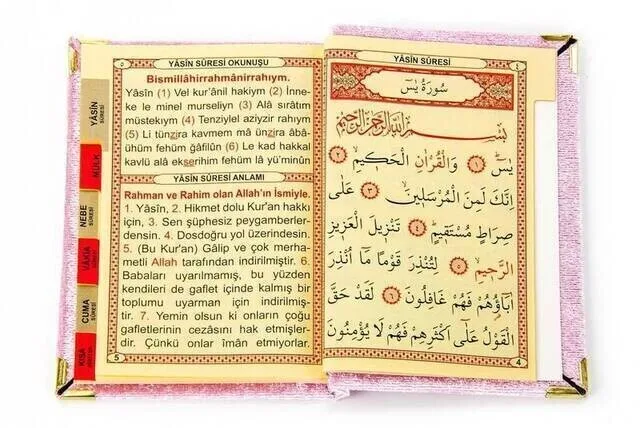 ٥
YÂSİN SÛRESİ OKUNUŞU
Bismillâhirrahmânirrahıym.
Yâsîn (1) Vel kur'ânil hakiym (2) İnne-
ke le minel murseliyn (3) Alâ sırâtım
müstekıym (4) Tenziylel aziyzir rahıym
(5) Li tünzira kavmem mâ ünzira âbâ-
ühüm fehüm gâfilûn (6) Le kad hakkal
kavlü alâ ekserihim fehüm lâ yü'minûn
YÂSİN SÛRESİ ANLAMI
Rahman ve Rahim olan Allah'ın İsmiyle.
1. Yâsîn, 2. Hikmet dolu Kur'an hakkı
için, 3. Sen şüphesiz peygamberler-
densin. 4. Dosdoğru yol üzerindesin.
5. (Bu Kur'an) Gâlip ve çok merha-
metli Allah tarafından indirilmiştir. 6.
Babaları uyarılmamış, bu yüzden
kendileri de gaflet içinde kalmış bir
toplumu uyarman için indirilmiş-
tir. 7. Yemin olsun ki onların çoğu
gafletlerinin cezasını hak etmişler-
dir. Çünkü onlar îmân etmiyorlar.
5
YÂSİN
SÛRESİ
MÜLK
NEBE
SÛRESİ
VAKIA
SÛRESİ
CUMA
SÛRESİ
KISA
YÂSİN SÛRESİ
٤
سُورَةُ يٰسٓ
بِسْمِ اللّٰهِ الرَّحْمٰنِ الرَّحِيمِ
يٰسٓ ﴿١﴾ وَالْقُرْاٰنِ الْحَكِيمِ ﴿٢﴾
اِنَّكَ لَمِنَ الْمُرْسَلِينَ ﴿٣﴾ عَلٰى
صِرَاطٍ مُسْتَقِيمٍ ﴿٤﴾ تَنْزِيلَ الْعَزِيزِ
الرَّحِيمِ ﴿٥﴾ لِتُنْذِرَ قَوْمًا مَٓا اُنْذِرَ
اٰبَٓاؤُهُمْ فَهُمْ غَافِلُونَ ﴿٦﴾ لَقَدْ حَقَّ
الْقَوْلُ عَلٰٓى اَكْثَرِهِمْ فَهُمْ لَا يُؤْمِنُونَ
4